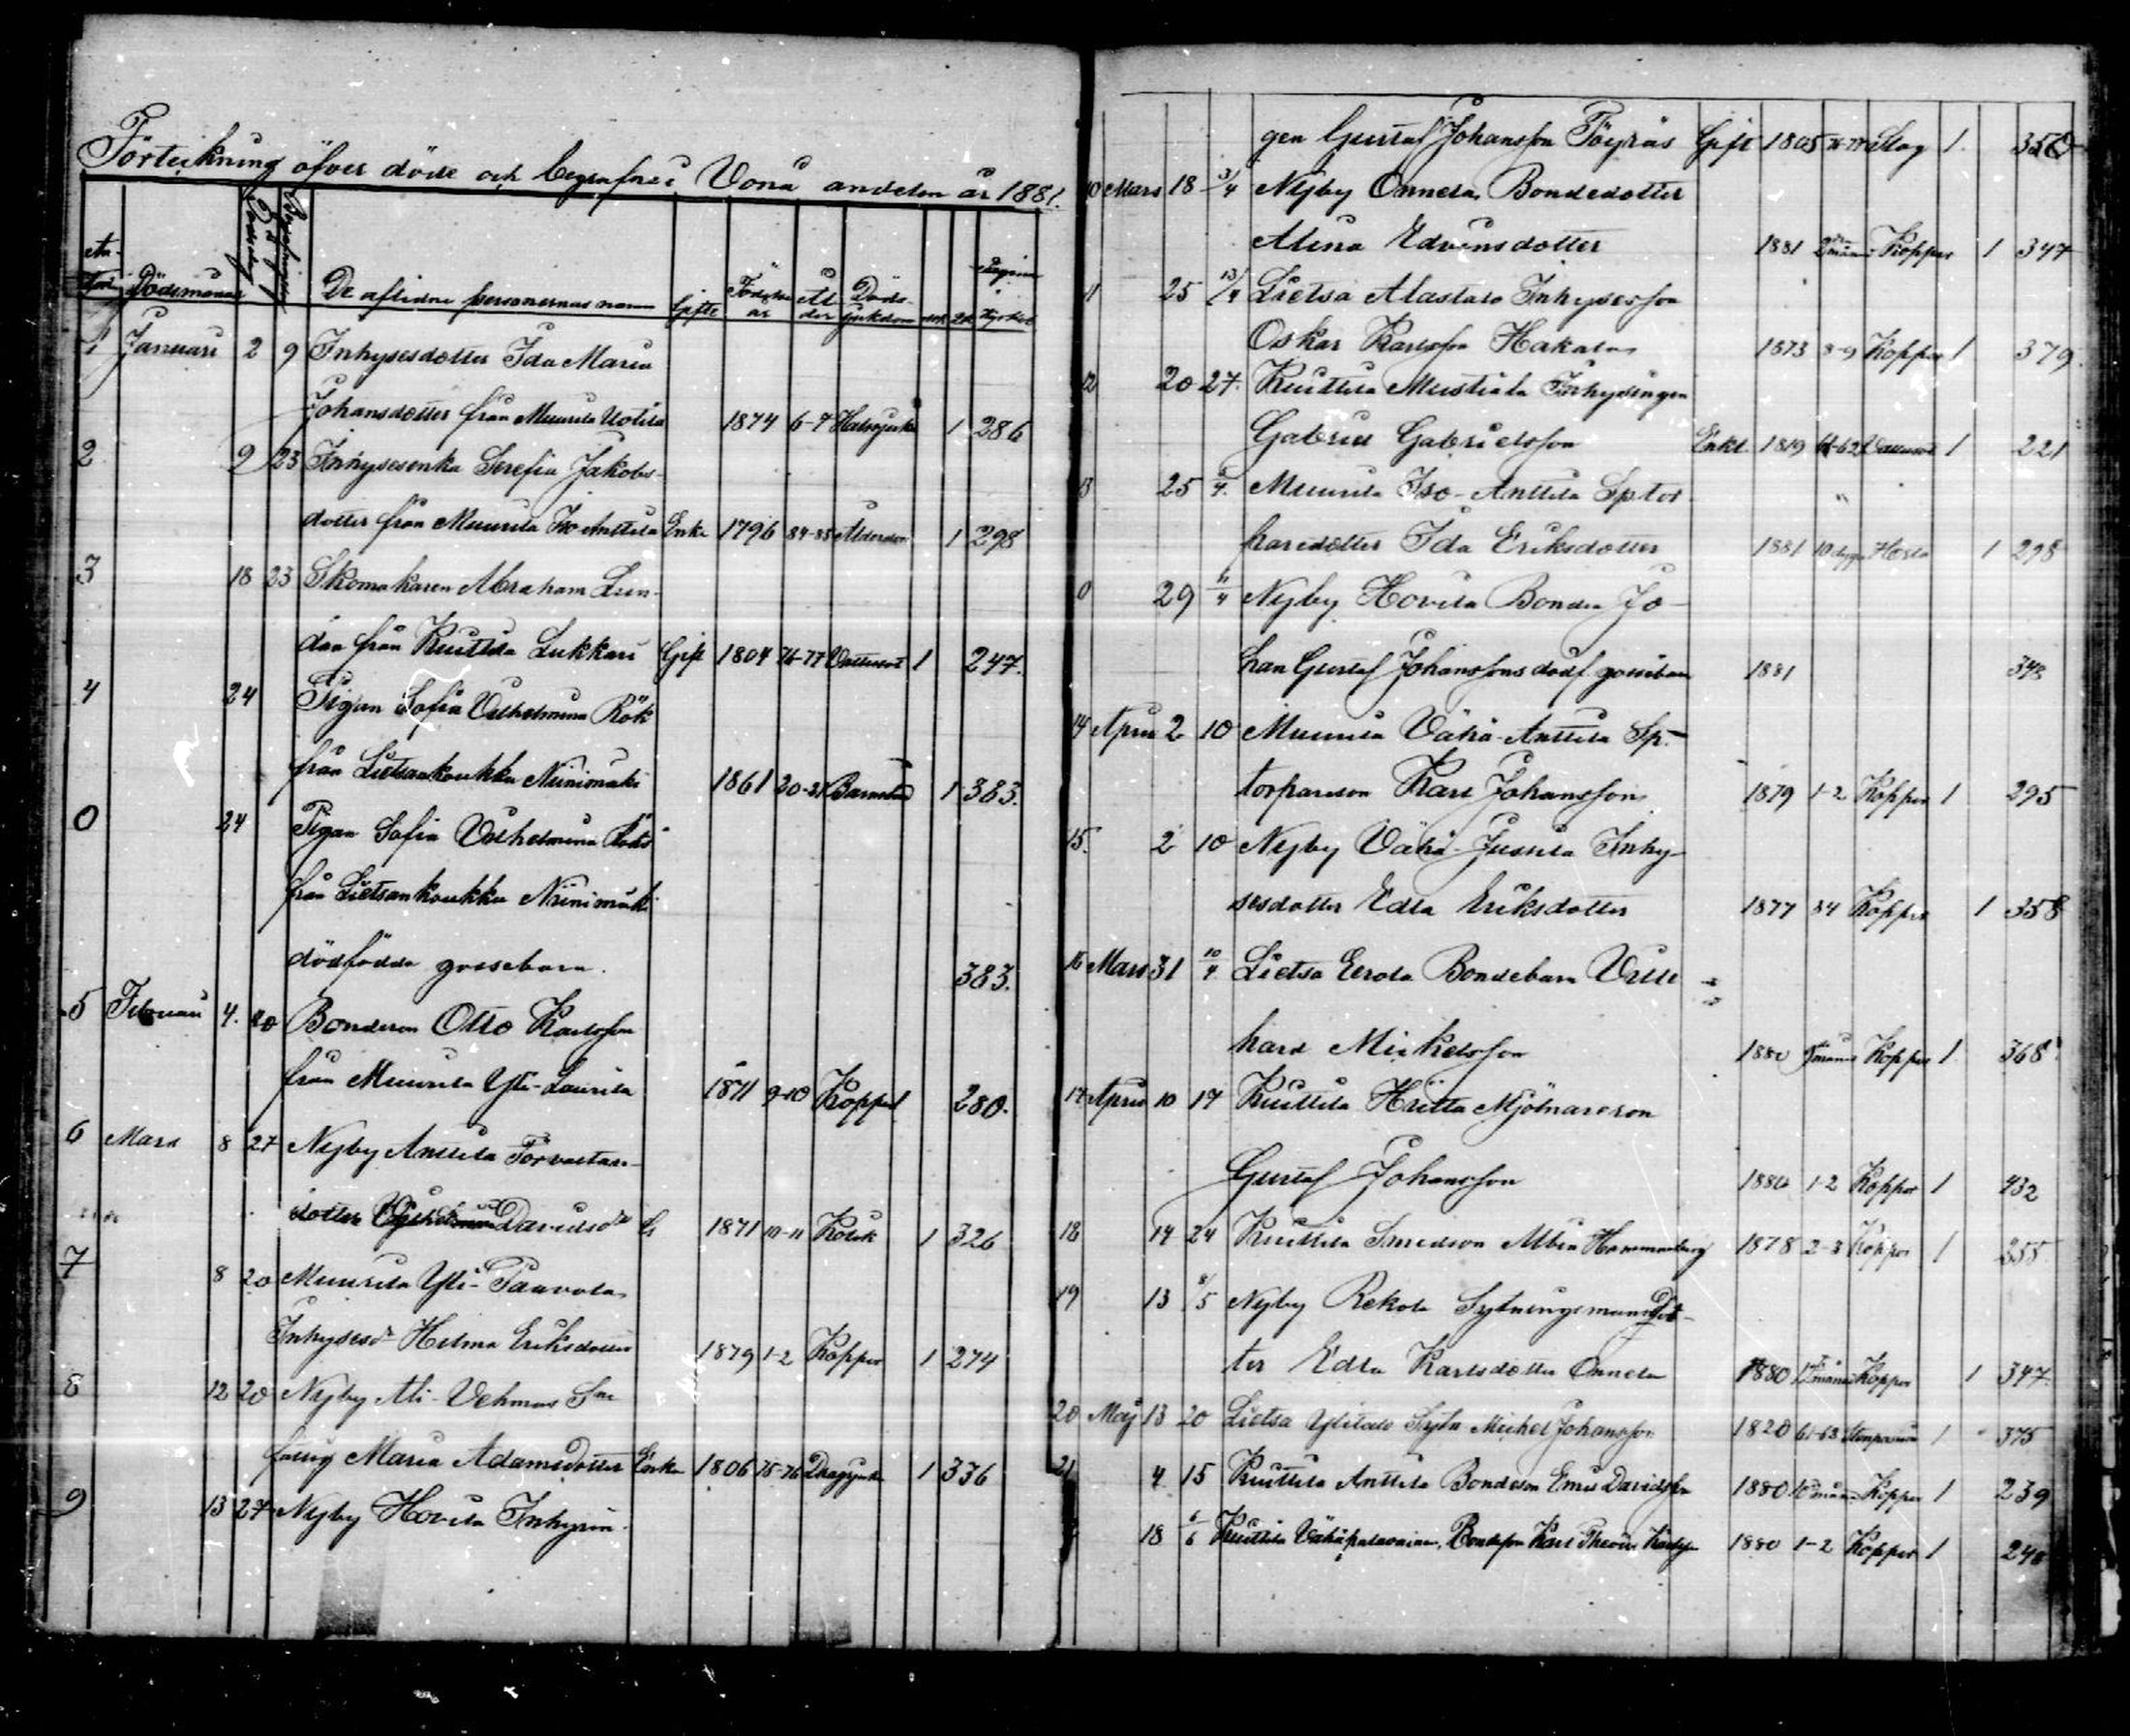 Förteckning öfver döde och begrafne i Vonå andelen år 1881.
An- Dödsmånad De aflidne personernas namn Gifte Födelse år Ål der Döds- sjukdom Pagina i kyrkob
1 Januari 2 9 Inhysesdotter Ida Maria
Johansdotter från Muurila Uotila 1874 6-7 Halssjuka 1 286
2 9 23 Inhysesenka Serefia Jakobs-
dotter från Muurila Iso Anttila Enka 1796 84-85 Ålderdom 1 298
3 18 23 Skomakaren Abraham Lin-
dén från Kuittila Lukkari Gift 1804 76-77 Vattusot 1 247.
4 24 Pigan Sofia Vilhelmina Rök
från Lietsankoukku Niinimäki 1861 20-21 Barnsbörd 1 383.
0 24 Pigan Sofia Vilhelmina Röks
från Lietsankoukku Niinimäki
dödfödda gossebarn. 383.
5 Februari 4. 20 Bondeson Otto Karlsson
från Muurila Yli-Laurila 1871 9-10 Koppor 1 280.
6 Mars 8 27 Nyby Anttila Torvastare-
dotter Vilhelmina Davidsdr 1871 10-11 Kolik 1 326
7 8 20 Muurila Yli-Paavola
Inhysesdr Hilma Eriksdotter 1879 1-2 Koppor 1 274
8 12 20 Nyby Ali-Vehmas Inne
fattig Maria Adamsdotter Enka 1806 75-76 Dragsjuka 1 336
9 13 27 Nyby Hovila Inhysin-
gen Gustaf Johansson Töyräs Gift 1805 76-77 Slag 1. 356
10 Mars 18 3/4 Nyby Onnela Bondedotter
Alina Edvinsdotter 1881 2 mån Koppor 1 347
11 25 13/4 Lietsa Alastalo Inhysesson
Oskar Karlsson Hakala 1873 8-9 Koppor 1 379.
12 20 27. Kuittila Mustiala Inhysingen
Gabriel Gabrielsson Enkl. 1819 61-62 Vattusot 1 221
13 25 3/4. Muurila Iso-Anttila Sptor
paredotter Ida Eriksdotter 1881 10 dygn Hosta 1 298
0 29 11/4 Nyby Hovila Bonden Jo-
han Gustaf Johanssons dödf. gossebarn 1881 348
14 April 2 10 Muurila Vähä-Anttila Sp.
torpareson Karl Johansson 1879 1-2 Koppor 1 295
15. 2 10 Nyby Vähä-Jussila Inhy-
sesdotter Edla Eriksdotter 1877 34 Koppor 1 358
16 Mars 31 10/4 Lietsa Eerola Bondebarn Villi
hard Mickelsson 1880 mån Koppor 1 368
17 April 10 17 Kuittila Hiitta Mjölnareson
Gustaf Johansson 1880 1-2 Koppor 1 432
18 14 24 Kuittila Smedson Albin Hammarberg 1878 2-3 Koppor 1 255
19 13 8/5 Nyby Rekola Sytningsmans Dot-
ter Edla Karlsdotter Onnela 1880 mån Koppor 1 347.
20 Maj 13 20 Lietsa Ylitalo Sytn Michel Johansson 1820 61-62 1 375
21 4 15 Kuittila Anttila Bondeson Emil Davidsson 1880 10 mån Koppor 1 239
18 6/6 Kuittila Vähäpalavainen, Bondeson Karl Karlsson 1880 1-2 Koppor 1 248